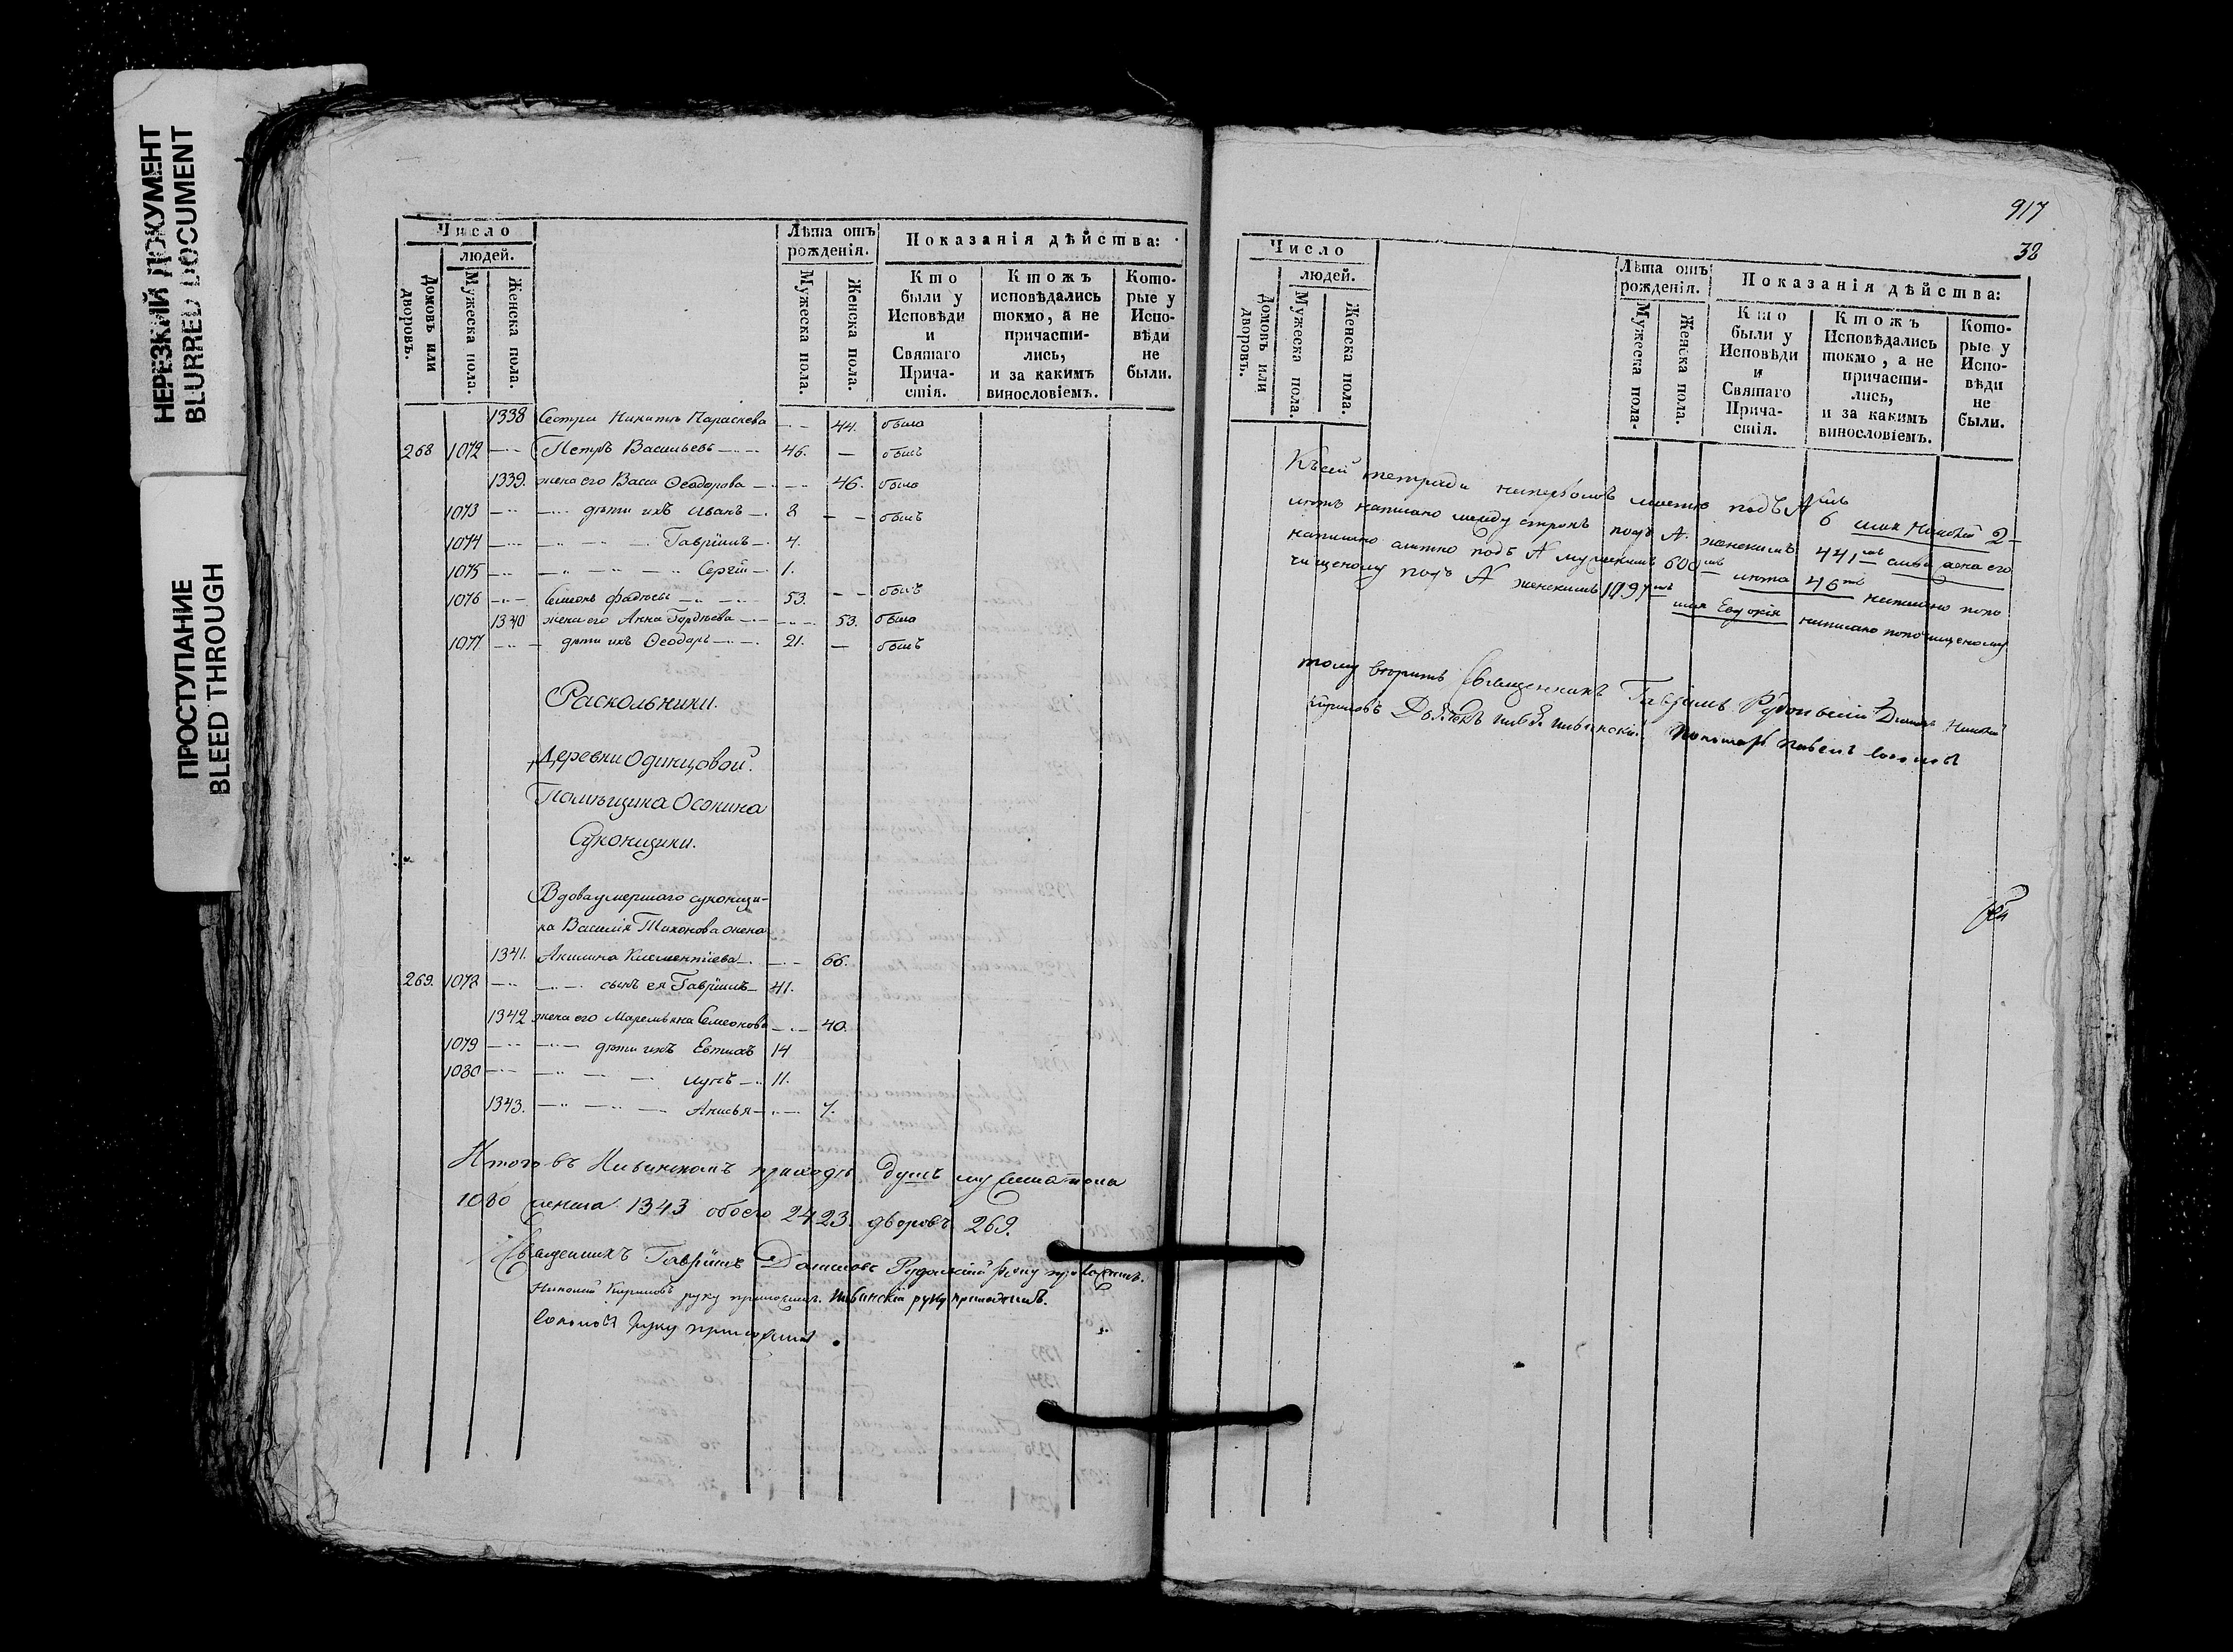 НЕРЕЗКИЙ ДОКУМЕНТ
BLURRED DOCUMENT
ПРОСТУПАНИЕ
BLEED THROUGH
Число
людей.
Домовъ или дворовъ.
Мужеска пола.
Женска пола.
Лѣта отъ рожденія.
Мужеска пола.
Женска пола.
Показанія дѣйства:
Кто были у Исповѣди и Святаго Прича-стія.
Ктожъ исповѣдались токмо, а не причасти-лись, и за какимъ винословіемъ.
Кото-рые у Испо-вѣди не были.
1338 Сестра Никиты Параскева 44. была
268 1072 Петръ Васильевъ 46. былъ
1339. жена его Васса Ѳеодорова 46. была
1073 дѣти ихъ Иванъ 8 былъ
1074 Гавріилъ 4.
1075 Сергій 1.
1076 Симеонъ Фадѣевъ 53. былъ
1340 жена его Анна Гордѣева 53. была
1077 дѣти ихъ Ѳеодоръ 21. былъ
Раскольники.
Деревни Одинцовой.
Помѣщика Осокина
Суконщики.
Вдова умершаго суконщи-
ка Василія Тихонова жена
1341. Акилина Клементіева 66.
269. 1078 сынъ ея Гавріилъ 41.
1342 жена его Маремьяна Симеонова 40.
1079 дѣти ихъ Евтихъ 14
1080 Лупъ 11.
1343. Анисья 7.
Итого въ приходѣ душъ мужеска пола
1080 женска 1343 обоего 2423. дворовъ 269.
Священникъ Гавріилъ Даниловъ руку приложилъ.
Николай Кириловъ руку приложилъ. руку приложилъ.
руку приложилъ.
917
38
Число
людей.
Домовъ или дворовъ.
Мужеска пола.
Женска пола.
Лѣта отъ рожденія.
Мужеска пола.
Женска пола.
Показанія дѣйства:
Кто были у Исповѣди и Святаго Прича-стія.
Ктожъ Исповѣдались токмо, а не причасти-лись, и за какимъ винословіемъ.
Кото-рые у Испо-вѣди не были.
Къ сей тетради на первомъ листѣ подъ № 6 имя Николай 2
лѣтъ написано между строкъ подъ № женскимъ 441мъ слова жена его
написано подъ № мужскимъ 600мъ лѣта 46ть написано попо
чищеному подъ № женскимъ имя Евдокія написано попочищеному
тому вѣрить Священникъ Гавріилъ Николай
Кириловъ Пономарь Павелъ